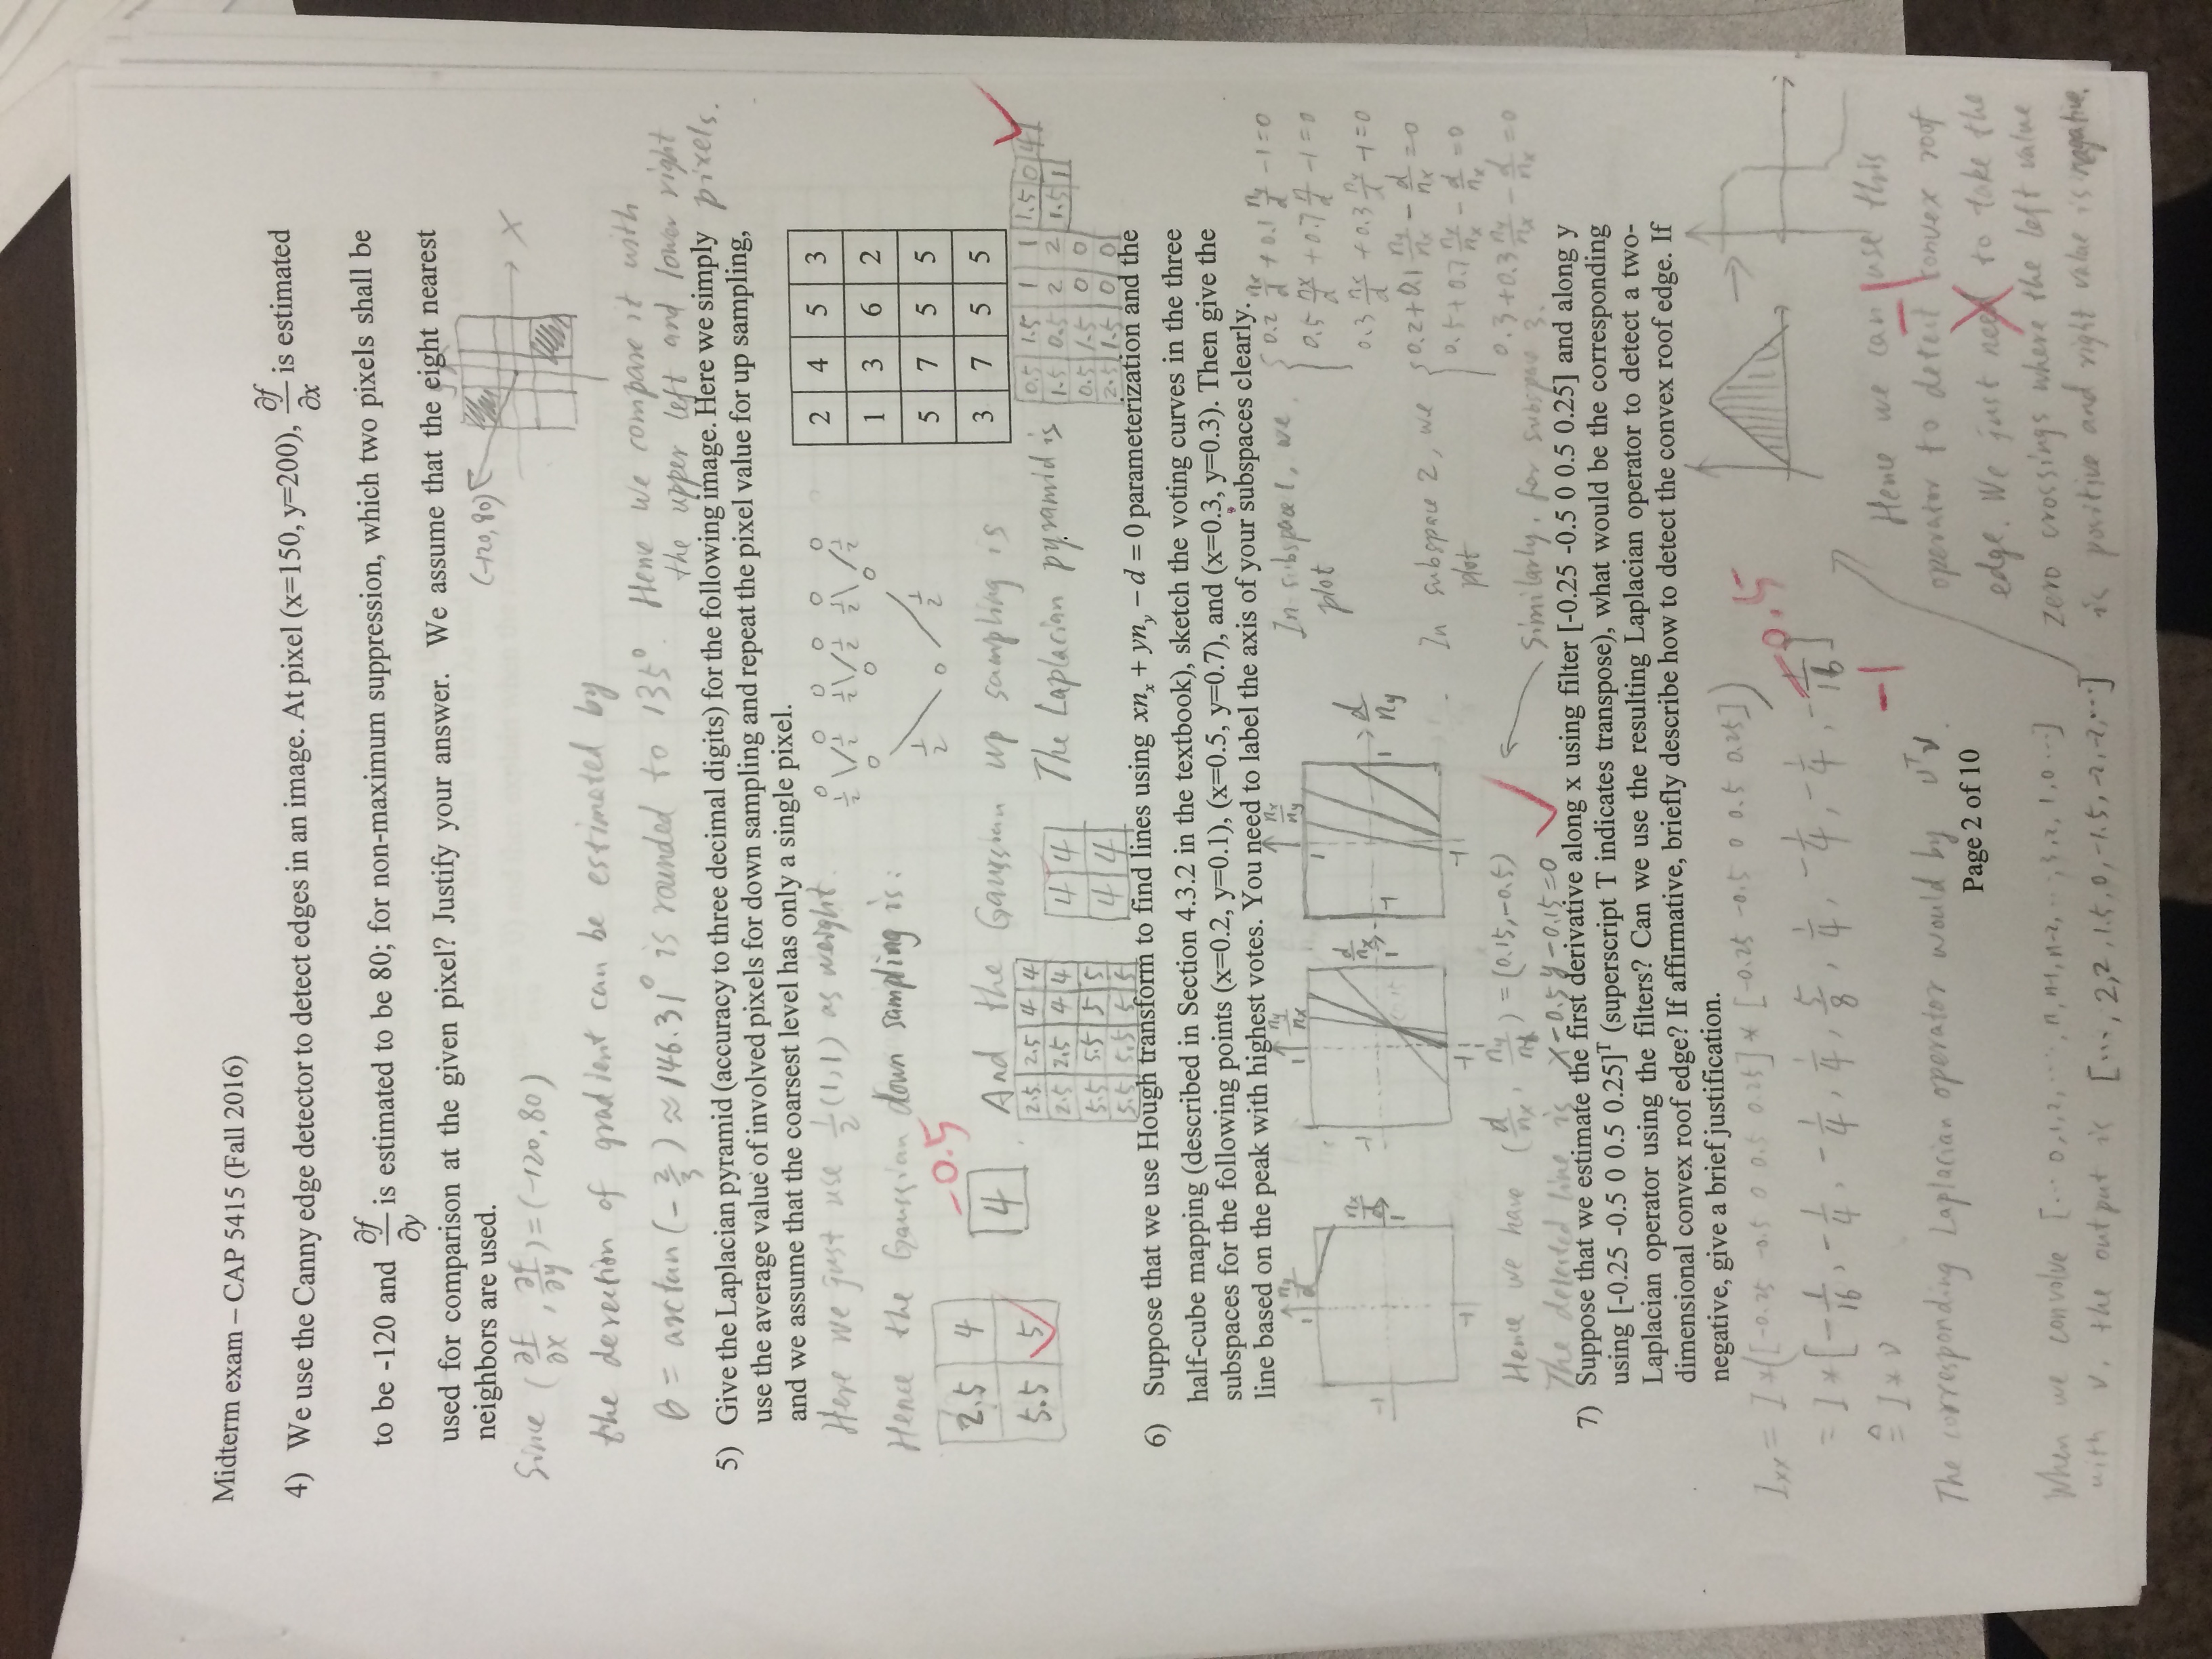 Midterm exam – CAP 5415 (Fall 2016)
4) We use the Canny edge detector to detect edges in an image. At pixel (x=150, y=200), ∂f/∂x is estimated
to be -120 and ∂f/∂y is estimated to be 80; for non-maximum suppression, which two pixels shall be
used for comparison at the given pixel? Justify your answer. We assume that the eight nearest
neighbors are used.
Since (∂f/∂x, ∂f/∂y) = (-120, 80)
(-120, 80)
x
the derection of gradient can be estimated by
θ = arctan(-2/3) ≈ 146.31° is rounded to 135°. Hence we compare it with
the upper left and lower right pixels.
5) Give the Laplacian pyramid (accuracy to three decimal digits) for the following image. Here we simply
use the average value of involved pixels for down sampling and repeat the pixel value for up sampling,
and we assume that the coarsest level has only a single pixel.
2 4 5 3
1 3 6 2
5 7 5 5
3 7 5 5
Here we just use 1/2(1,1) as weight.
0 0 0 0 0
1/2 1/2 1/2 1/2 1/2 1/2
0 0 0
1/2 0 1/2
Hence the Gaussian down sampling is:
2.5 4
5.5 5
4
-0.5
And the Gaussian up sampling is
2.5 2.5 4 4
2.5 2.5 4 4
5.5 5.5 5 5
5.5 5.5 5 5
4 4
4 4
The Laplacian pyramid is
0.5 1.5 1 1
1.5 0.5 2 2
0.5 1.5 0 0
2.5 1.5 0 0
1.5 0
1.5 1
4
6) Suppose that we use Hough transform to find lines using xnₓ + yn_y − d = 0 parameterization and the
half-cube mapping (described in Section 4.3.2 in the textbook), sketch the voting curves in the three
subspaces for the following points (x=0.2, y=0.1), (x=0.5, y=0.7), and (x=0.3, y=0.3). Then give the
line based on the peak with highest votes. You need to label the axis of your subspaces clearly.
In subspace 1, we
plot
0.2 nx/d + 0.1 ny/d - 1 = 0
0.5 nx/d + 0.7 ny/d - 1 = 0
0.3 nx/d + 0.3 ny/d - 1 = 0
In subspace 2, we
plot
0.2 + 0.1 ny/nx - d/nx = 0
0.5 + 0.7 ny/nx - d/nx = 0
0.3 + 0.3 ny/nx - d/nx = 0
Similarly, for subspace 3.
Hence we have (d/nx, ny/nx) = (0.15, -0.5)
The detected line is x - 0.5y - 0.15 = 0
7) Suppose that we estimate the first derivative along x using filter [-0.25 -0.5 0 0.5 0.25] and along y
using [-0.25 -0.5 0 0.5 0.25]ᵀ (superscript T indicates transpose), what would be the corresponding
Laplacian operator using the filters? Can we use the resulting Laplacian operator to detect a two-
dimensional convex roof edge? If affirmative, briefly describe how to detect the convex roof edge. If
negative, give a brief justification.
Ixx = I*([-0.25 -0.5 0 0.5 0.25] * [-0.25 -0.5 0 0.5 0.25])
= I*[-1/16, -1/4, -1/4, 1/4, 5/8, 1/4, -1/4, -1/4, -1/16]
-0.5
≙ I * v
The corresponding Laplacian operator would by vᵀv.
-1
When we convolve [... 0,1,2,...,n,n-1,n-2,...,3,2,1,0...]
with v, the output is [..., 2,2,1.5,0,-1.5,-2,-2,...]
Hence we can use this
operator to detect convex roof
edge. We just need to take the
zero crossings where the left value
is positive and right value is negative.
-1
Page 2 of 10